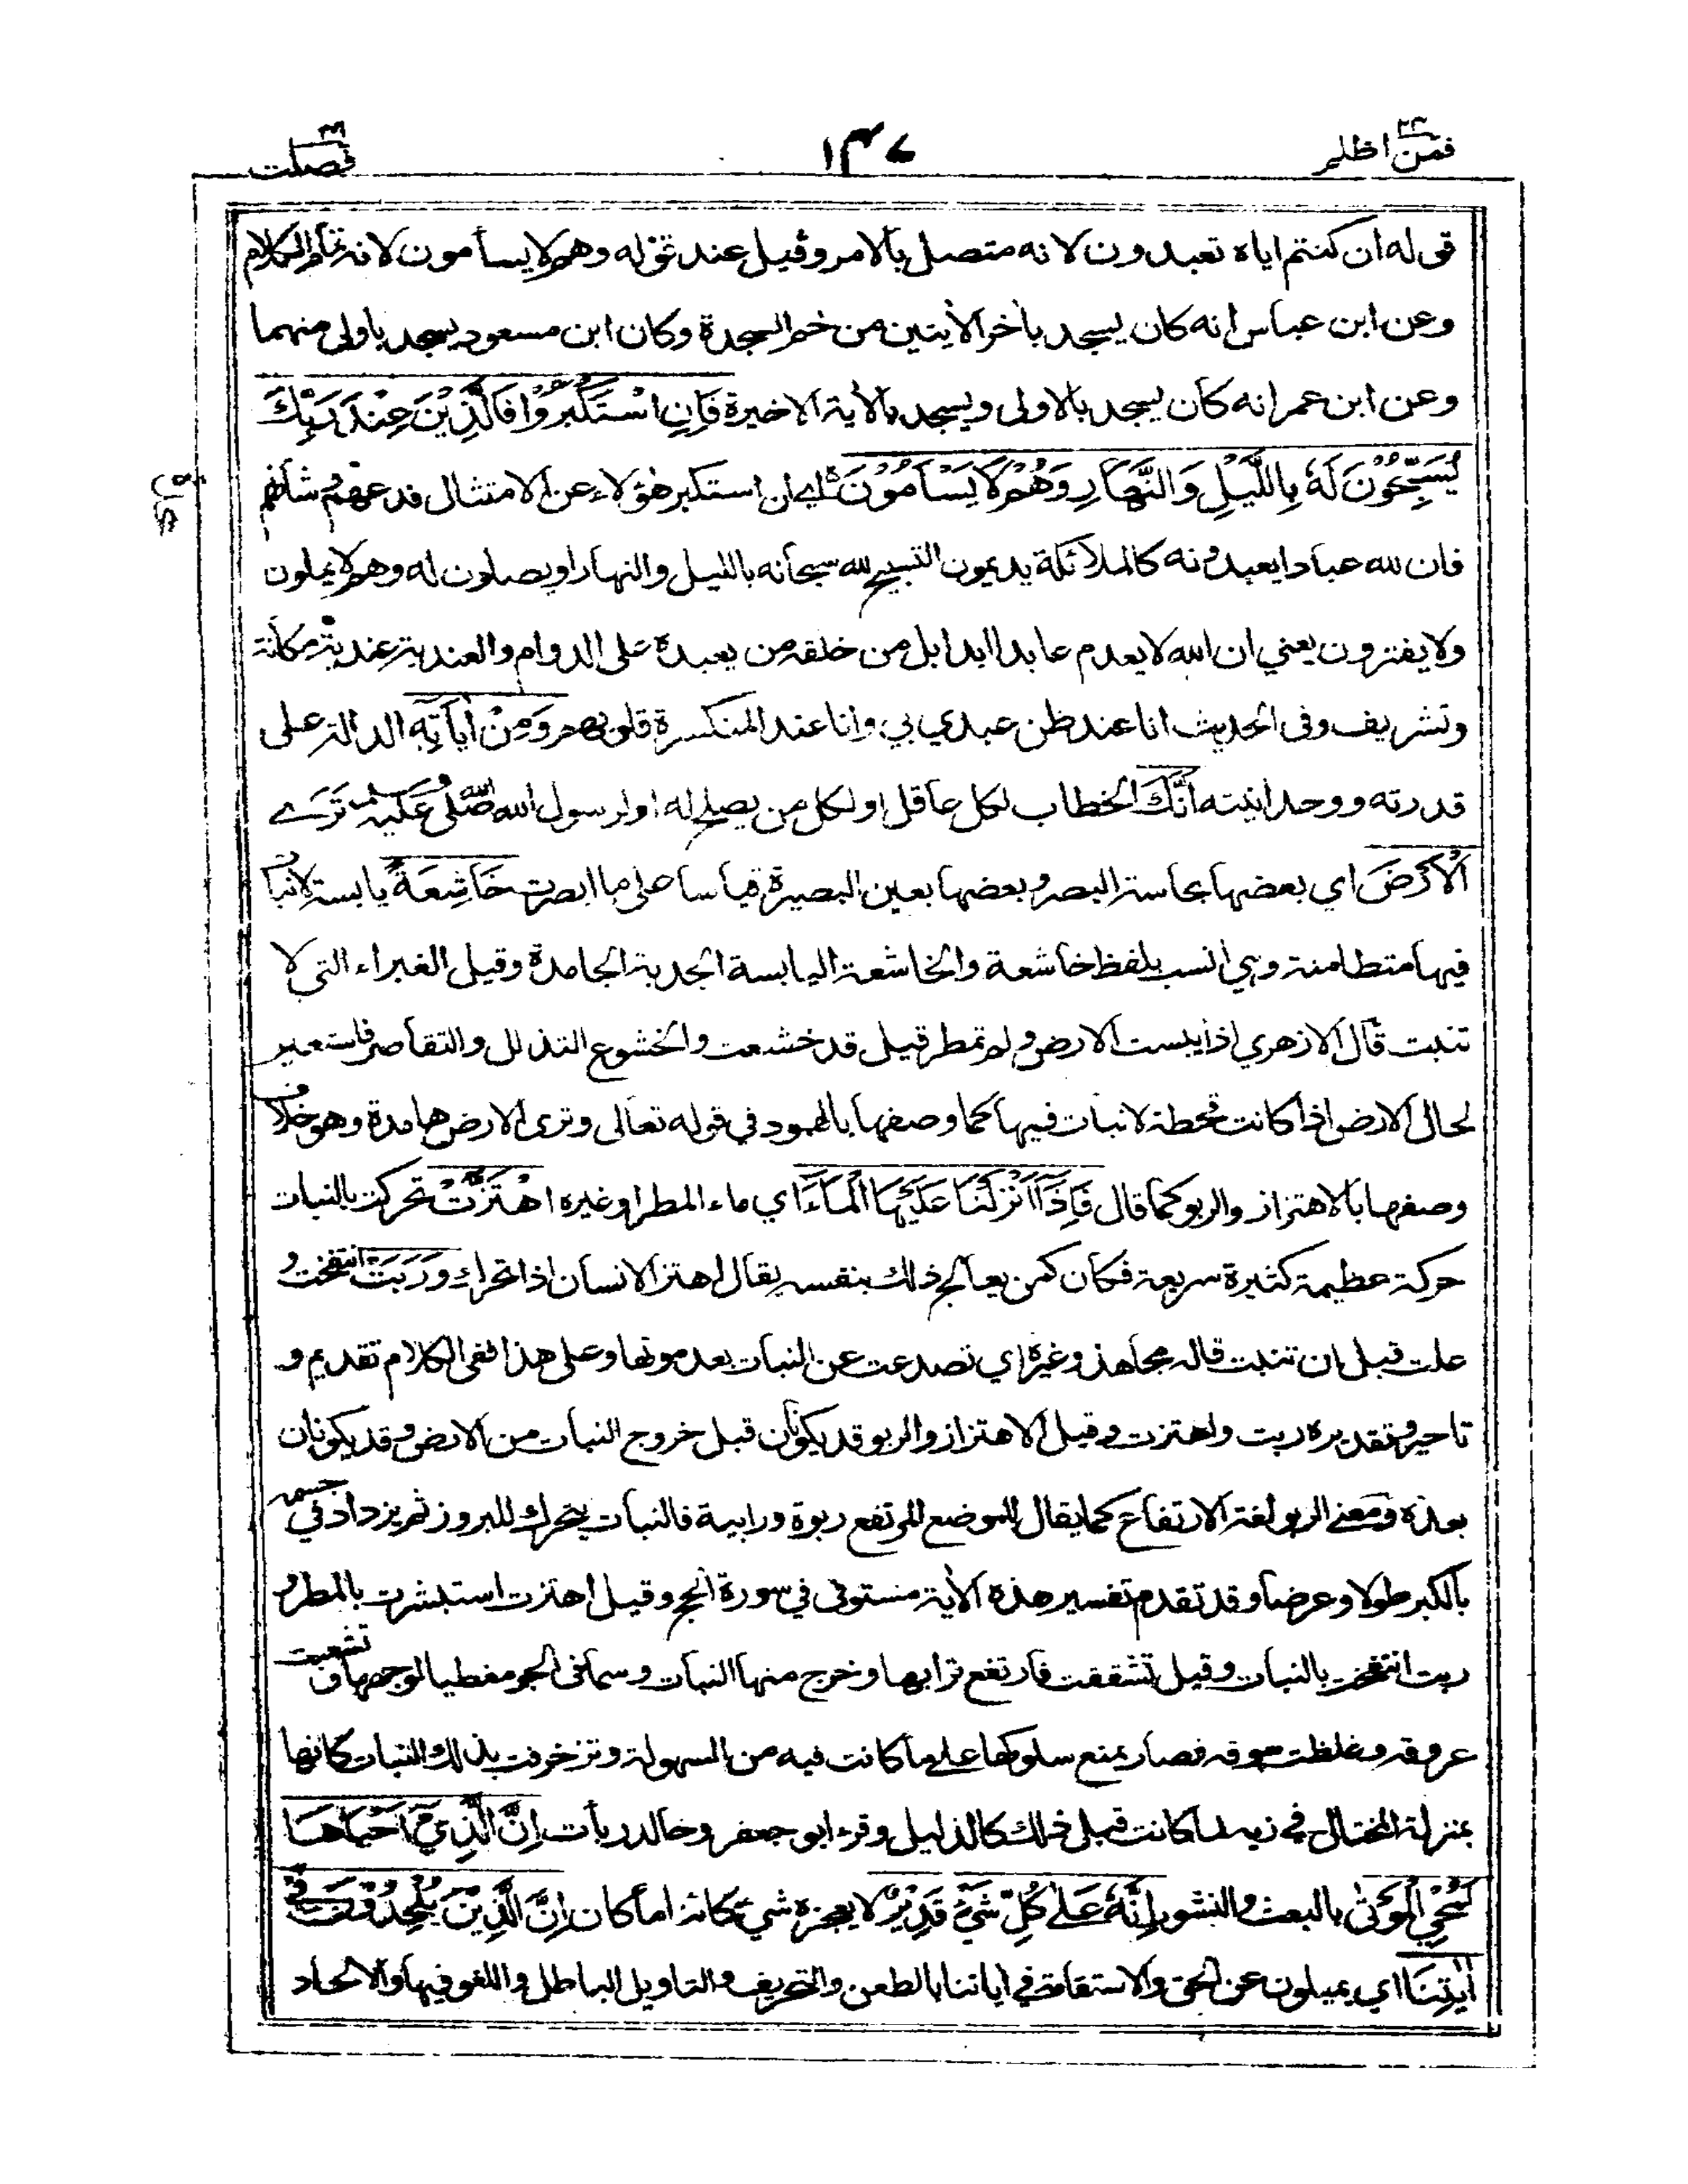 فمن اظلم ٢٤
١٣٧
فصلت ٤١
قوله ان كنتم اياه تعبدون لانه متصل بالامر وقيل عند قوله وهم لا يسأمون لانه تمام الكلام
وعن ابن عباس انه كان يسجد باخر الايتين من حم السجدة وكان ابن مسعود يسجد باولى منهما
وعن ابن عمر انه كان يسجد بالاولى ويسجد بالاية الاخيرة فَاِنِ اسْتَكْبَرُوْا فَالَّذِيْنَ عِنْدَ رَبِّكَ
يُسَبِّحُوْنَ لَهٗ بِاللَّيْلِ وَالنَّهَارِ وَهُمْ لَا يَسْاَمُوْنَ اے ان استكبر هؤلاء عن الامتثال فدعهم وشأنهم
فان لله عبادا يعبدونه كالملائكة يديمون التسبيح لله سبحانه بالليل والنهار او يصلون له وهم لا يملون
ولا يفترون يعني ان الله لا يعدم عابدا ابدا بل من خلقه من يعبده على الدوام والعندية عندية مكانة
وتشريف وفى الحديث انا عند ظن عبدي بي وانا عند المنكسرة قلوبهم وَمِنْ اٰيَاتِهٖ الدالة على
قدرته ووحدانيته اَنَّكَ الخطاب لكل عاقل او لكل من يصلح له او لرسول الله صلى الله عليه وسلم تَرَے
الْاَرْضَ اي بعضها بحاسة البصر وبعضها بعين البصيرة قياسا على ما ابصرت خَاشِعَةً يابسة لا نبات
فيها متطامنة وهي انسب بلفظ خاشعة والخاشعة اليابسة الجدبة الجامدة وقيل الغبراء التى لا
تنبت قال الازهري اذا يبست الارض ولم تمطر قيل قد خشعت والخشوع التذلل والتقاصر فاستعير
لحال الارض اذا كانت قحطة لا نبات فيها كما وصفها بالهمود في قوله تعالى وترى الارض هامدة وهو خلاف
وصفها بالاهتزاز والربو كما قال فَاِذَآ اَنْزَلْنَا عَلَيْهَا الْمَآءَ اي ماء المطر او غيره اهْتَزَّتْ تحركت بالنبات
حركة عظيمة كثيرة سريعة فكان كمن يعالج ذلك بنفسه يقال اهتز الانسان اذا تحرك وَرَبَتْ انتفخت و
علت قبل ان تنبت قاله مجاهد وغيره اي تصدعت عن النبات بعد موتها وعلى هذا ففى الكلام تقديم و
تاخير وتقديره ربت واهتزت وقيل الاهتزاز والربو قد يكونان قبل خروج النبات من الارض وقد يكونان
بعده ومعنى الربو لغة الارتفاع كما يقال للموضع المرتفع ربوة ورابية فالنبات يتحرك للبروز ثم يزداد في جسمه
بالكبر طولا وعرضا وقد تقدم تفسير هذه الاية مستوفى في سورة الحج وقيل اهتزت استبشرت بالمطر و
ربت انتفخت بالنبات وقيل تشققت فارتفع ترابها وخرج منها النبات وسما فى الجو مغطيا لوجهها وتشعبت
عروقه وغلظت سوقه فصار يمنع سلوكها على ما كانت فيه من السهولة وتزخرفت بذلك النبات كانها
بمنزلة المختال في زيه لما كانت قبل ذلك كالذليل وقرء ابو جعفر وخالد ربأت اِنَّ الَّذِيْٓ اَحْيَاهَا
لَمُحْيِ الْمَوْتٰى بالبعث والنشور اِنَّهٗ عَلٰى كُلِّ شَيْءٍ قَدِيْرٌ لا يعجزه شيء كائنا ما كان اِنَّ الَّذِيْنَ يُلْحِدُوْنَ فِيْٓ
اٰيٰتِنَا اي يميلون عن الحق والاستقامة في اياتنا بالطعن والتحريف والتاويل الباطل واللغو فيها والالحاد